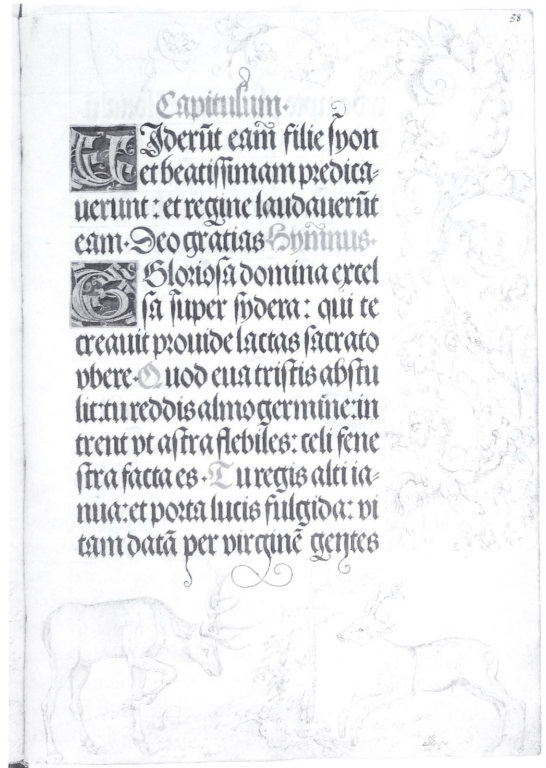 58
Capitulum.
VIderūt eam̄ filie syon
et beatissimam predica-
uerunt: et regine laudauerūt
eam. Deo gratias Hym̄nus.
O Gloriosa domina excel
sa sūper sydera: qui te
creauit prouide lactas sacrato
vbere. Quod eua tristis abstu
lit: tu reddis almo germine: in
trent vt astra flebiles: celi fene
stra facta es. Tu regis alti ia-
nua: et porta lucis fulgida: vi
tam datā per virginē gentes